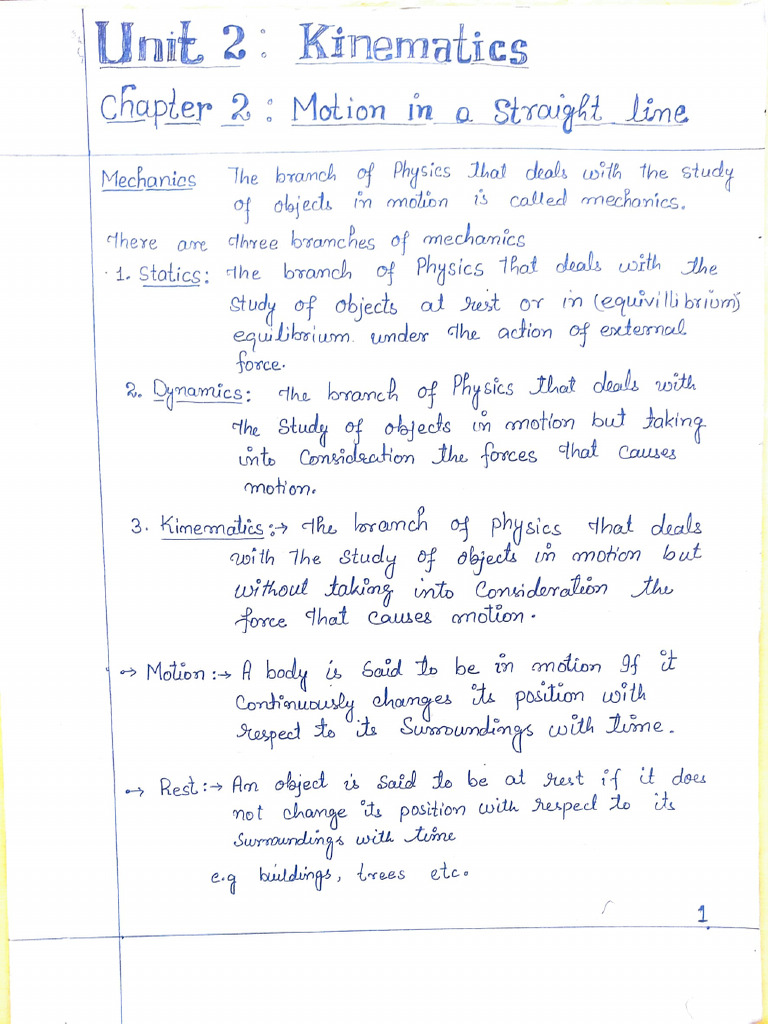 Unit 2: Kinematics
Chapter 2: Motion in a Straight line
Mechanics The branch of Physics that deals with the study
of objects in motion is called mechanics.
There are three branches of mechanics
1. Statics: The branch of Physics that deals with the
study of objects at rest or in (equivillibrium)
equilibrium under the action of external
force.
2. Dynamics: The branch of Physics that deals with
the study of objects in motion but taking
into Consideration the forces that causes
motion.
3. Kinematics:→ The branch of physics that deals
with the study of objects in motion but
without taking into Consideration the
force that causes motion.
→ Motion:→ A body is said to be in motion If it
Continuously changes its position with
respect to its Surroundings with time.
→ Rest:→ An object is said to be at rest if it does
not change its position with respect to its
surroundings with time
e.g buildings, trees etc.
1